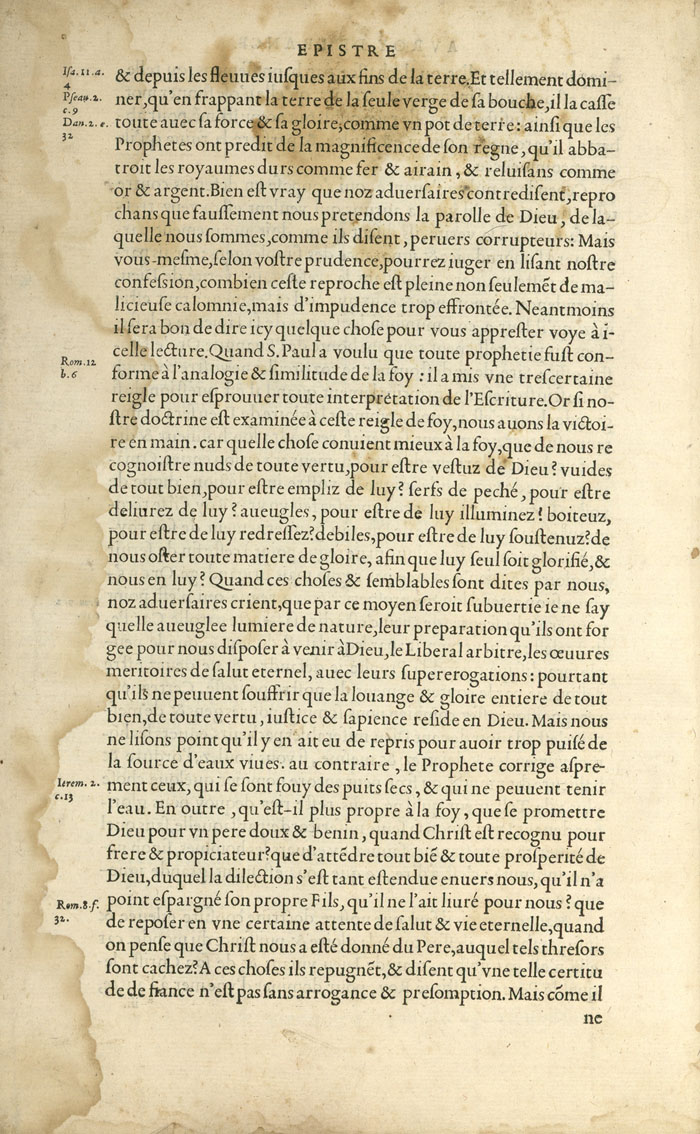 EPISTRE
Isa. 11. a.
4
Pseau. 2.
c. 9
Dan. 2. e.
32
& depuis les fleuues iusques aux fins de la terre. Et tellement domi-
ner, qu'en frappant la terre de la seule verge de sa bouche, il la casse
toute auec sa force & sa gloire, comme vn pot de terre: ainsi que les
Prophetes ont predit de la magnificence de son regne, qu'il abba-
troit les royaumes durs comme fer & airain, & reluisans comme
or & argent. Bien est vray que noz aduersaires contredisent, repro
chans que faussement nous pretendons la parolle de Dieu, de la-
quelle nous sommes, comme ils disent, peruers corrupteurs: Mais
vous-mesme, selon vostre prudence, pourrez iuger en lisant nostre
confession, combien ceste reproche est pleine non seulemēt de ma-
licieuse calomnie, mais d'impudence trop effrontée. Neantmoins
il sera bon de dire icy quelque chose pour vous apprester voye à i-
celle lecture. Quand S. Paul a voulu que toute prophetie fust con-
Rom. 12
b. 6
forme à l'analogie & similitude de la foy: il a mis vne trescertaine
reigle pour esprouuer toute interpretation de l'Escriture. Or si no-
stre doctrine est examinée à ceste reigle de foy, nous auons la victoi-
re en main. car quelle chose conuient mieux à la foy, que de nous re
cognoistre nuds de toute vertu, pour estre vestuz de Dieu? vuides
de tout bien, pour estre empliz de luy? serfs de peché, pour estre
deliurez de luy? aueugles, pour estre de luy illuminez! boiteuz,
pour estre de luy redressez? debiles, pour estre de luy soustenuz? de
nous oster toute matiere de gloire, afin que luy seul soit glorifié, &
nous en luy? Quand ces choses & semblables sont dites par nous,
noz aduersaires crient, que par ce moyen seroit subuertie ie ne say
quelle aueuglee lumiere de nature, leur preparation qu'ils ont for
gee pour nous disposer à venir à Dieu, le Liberal arbitre, les œuures
meritoires de salut eternel, auec leurs supererogations: pourtant
qu'ils ne peuuent souffrir que la louange & gloire entiere de tout
bien, de toute vertu, iustice & sapience reside en Dieu. Mais nous
ne lisons point qu'il y en ait eu de repris pour auoir trop puisé de
la source d'eaux viues. au contraire, le Prophete corrige aspre-
Ierem. 2.
c. 13
ment ceux, qui se sont fouy des puits secs, & qui ne peuuent tenir
l'eau. En outre, qu'est-il plus propre à la foy, que se promettre
Dieu pour vn pere doux & benin, quand Christ est recognu pour
frere & propiciateur? que d'attēdre tout biē & toute prosperité de
Dieu, duquel la dilection s'est tant estendue enuers nous, qu'il n'a
Rom. 8. f.
32.
point espargné son propre Fils, qu'il ne l'ait liuré pour nous? que
de reposer en vne certaine attente de salut & vie eternelle, quand
on pense que Christ nous a esté donné du Pere, auquel tels thresors
sont cachez? A ces choses ils repugnēt, & disent qu'vne telle certitu
de de fiance n'est pas sans arrogance & presomption. Mais cōme il
ne